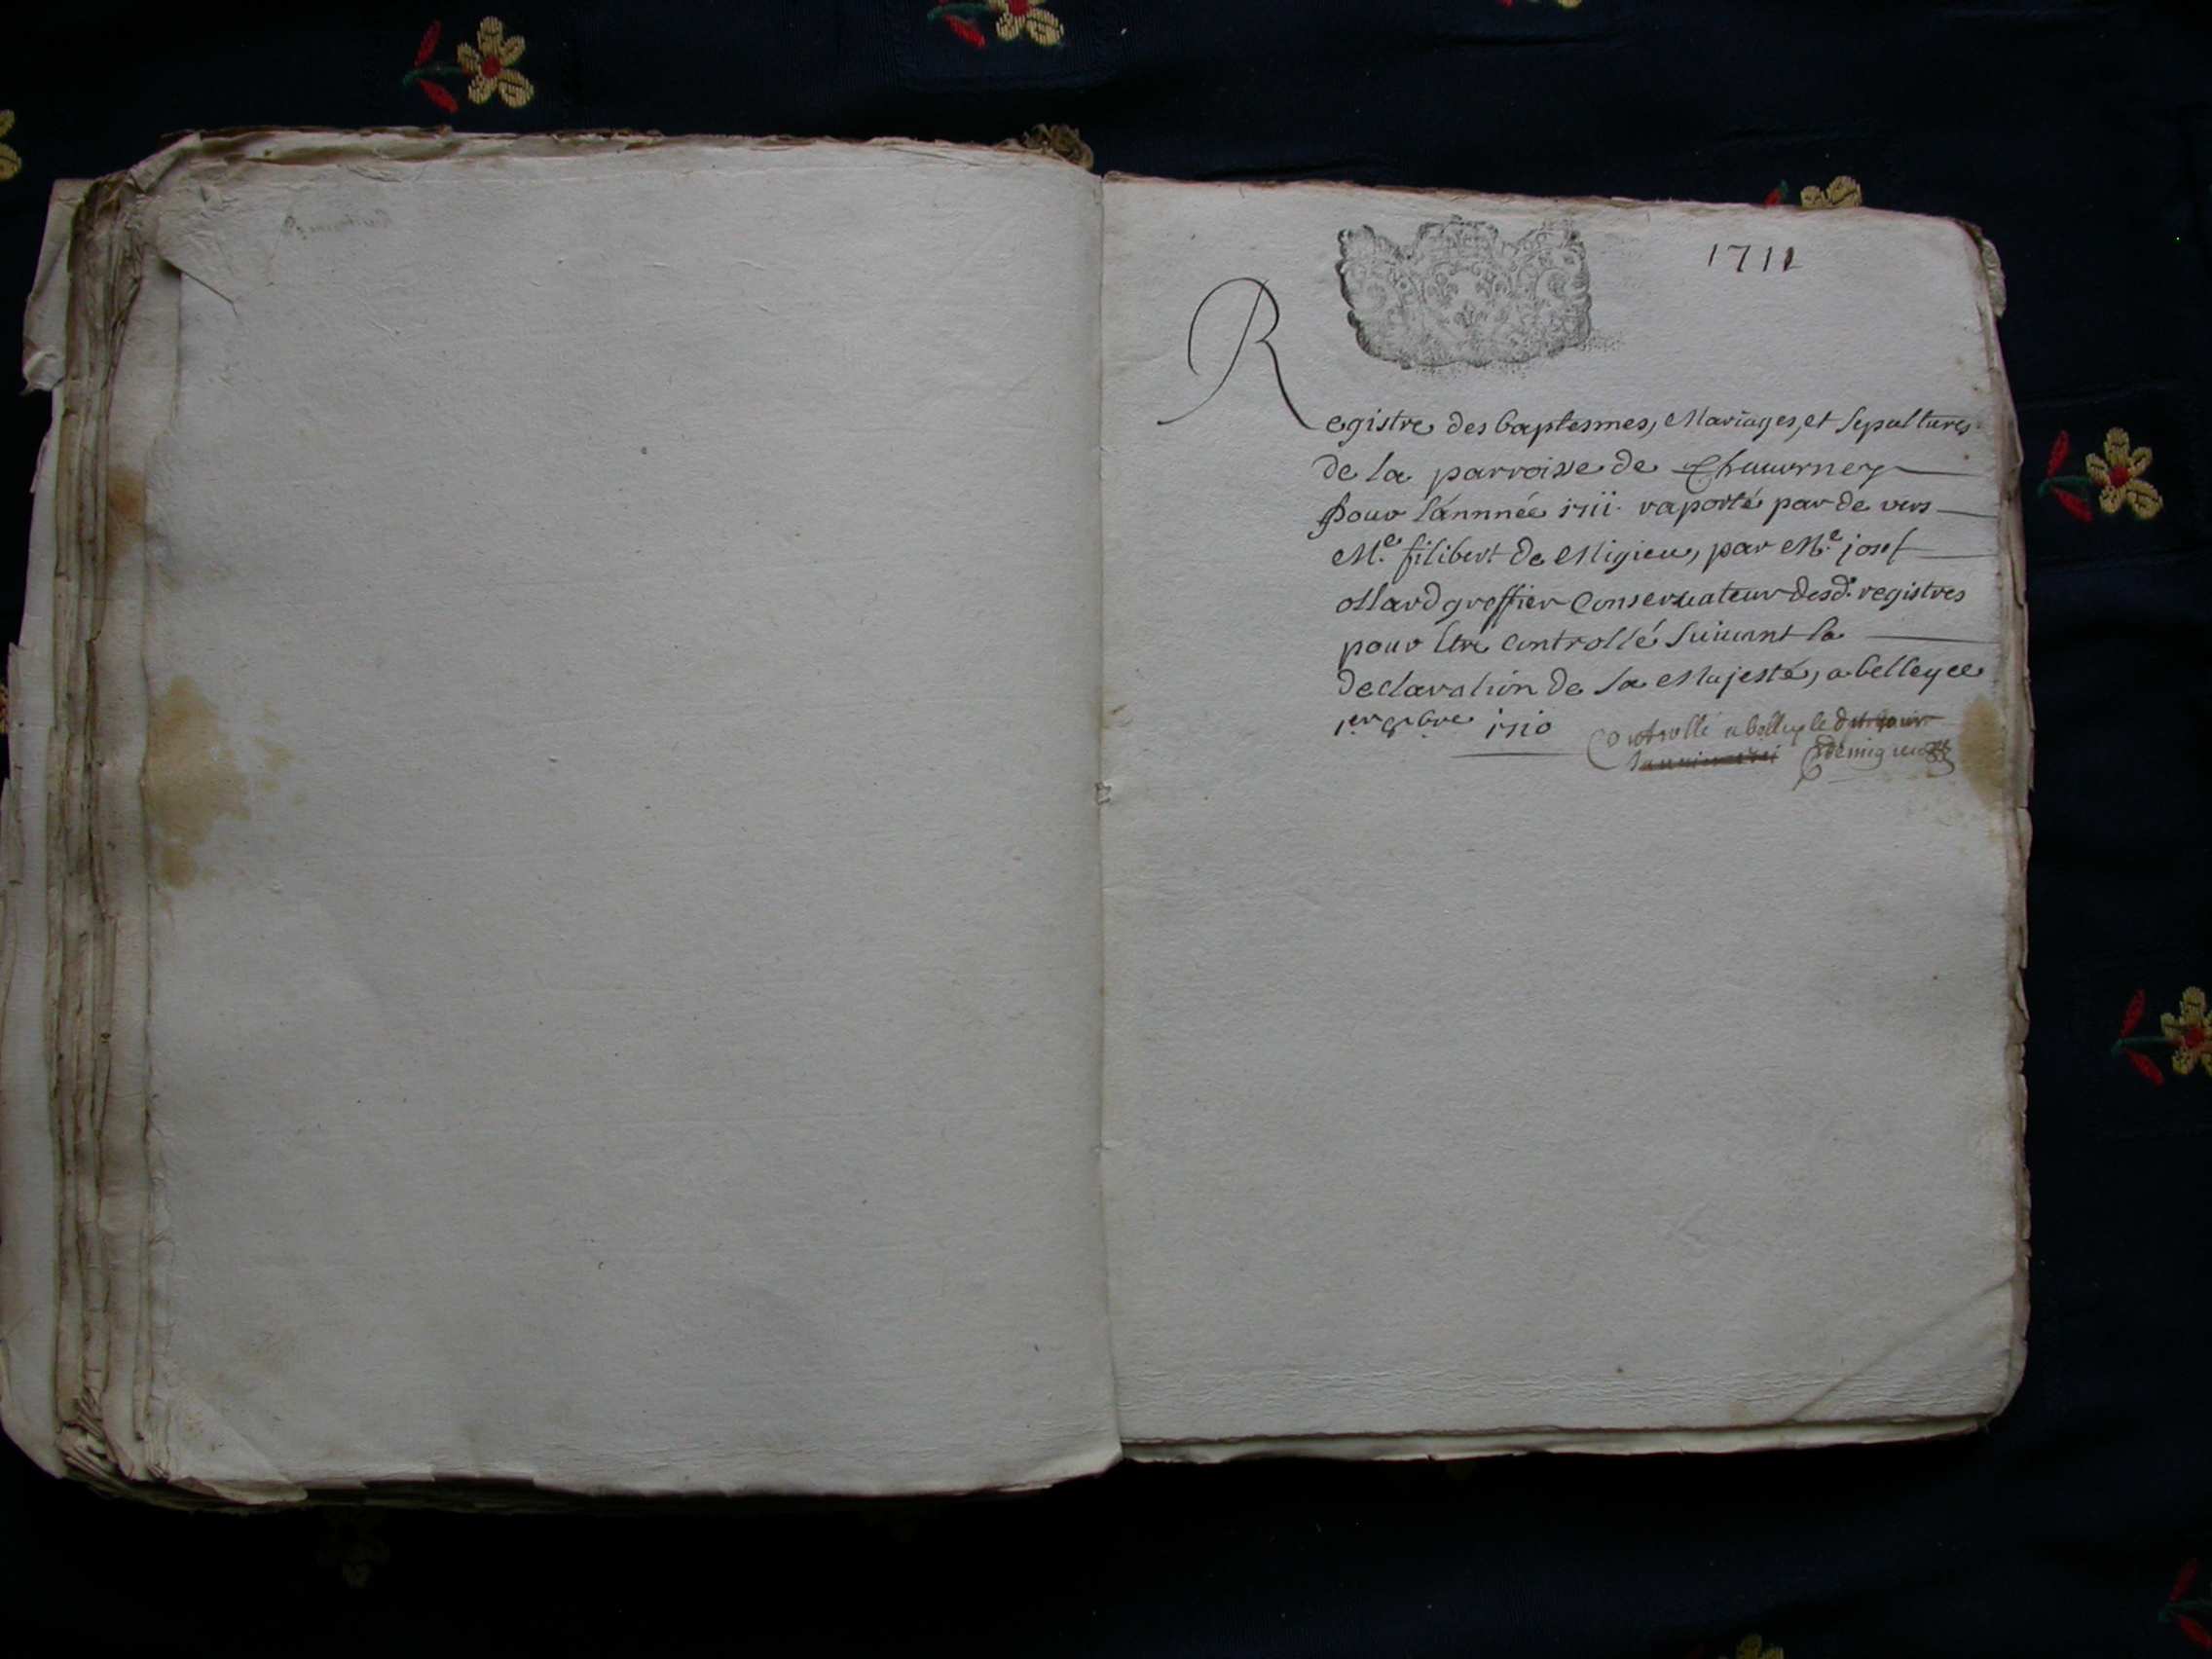 1711
Registre des baptesmes, Mariages, et sepultures
de la parroisse de
pour l'annnée 1711. raporté par de vers
M.e filibert de Migieu, par M.e josef
ollard greffier Conseruateur desd. registres
pour Etre controllé suiuant la
declaration de sa Majesté, a belley ce
1.er 1710
Controllé a belley le